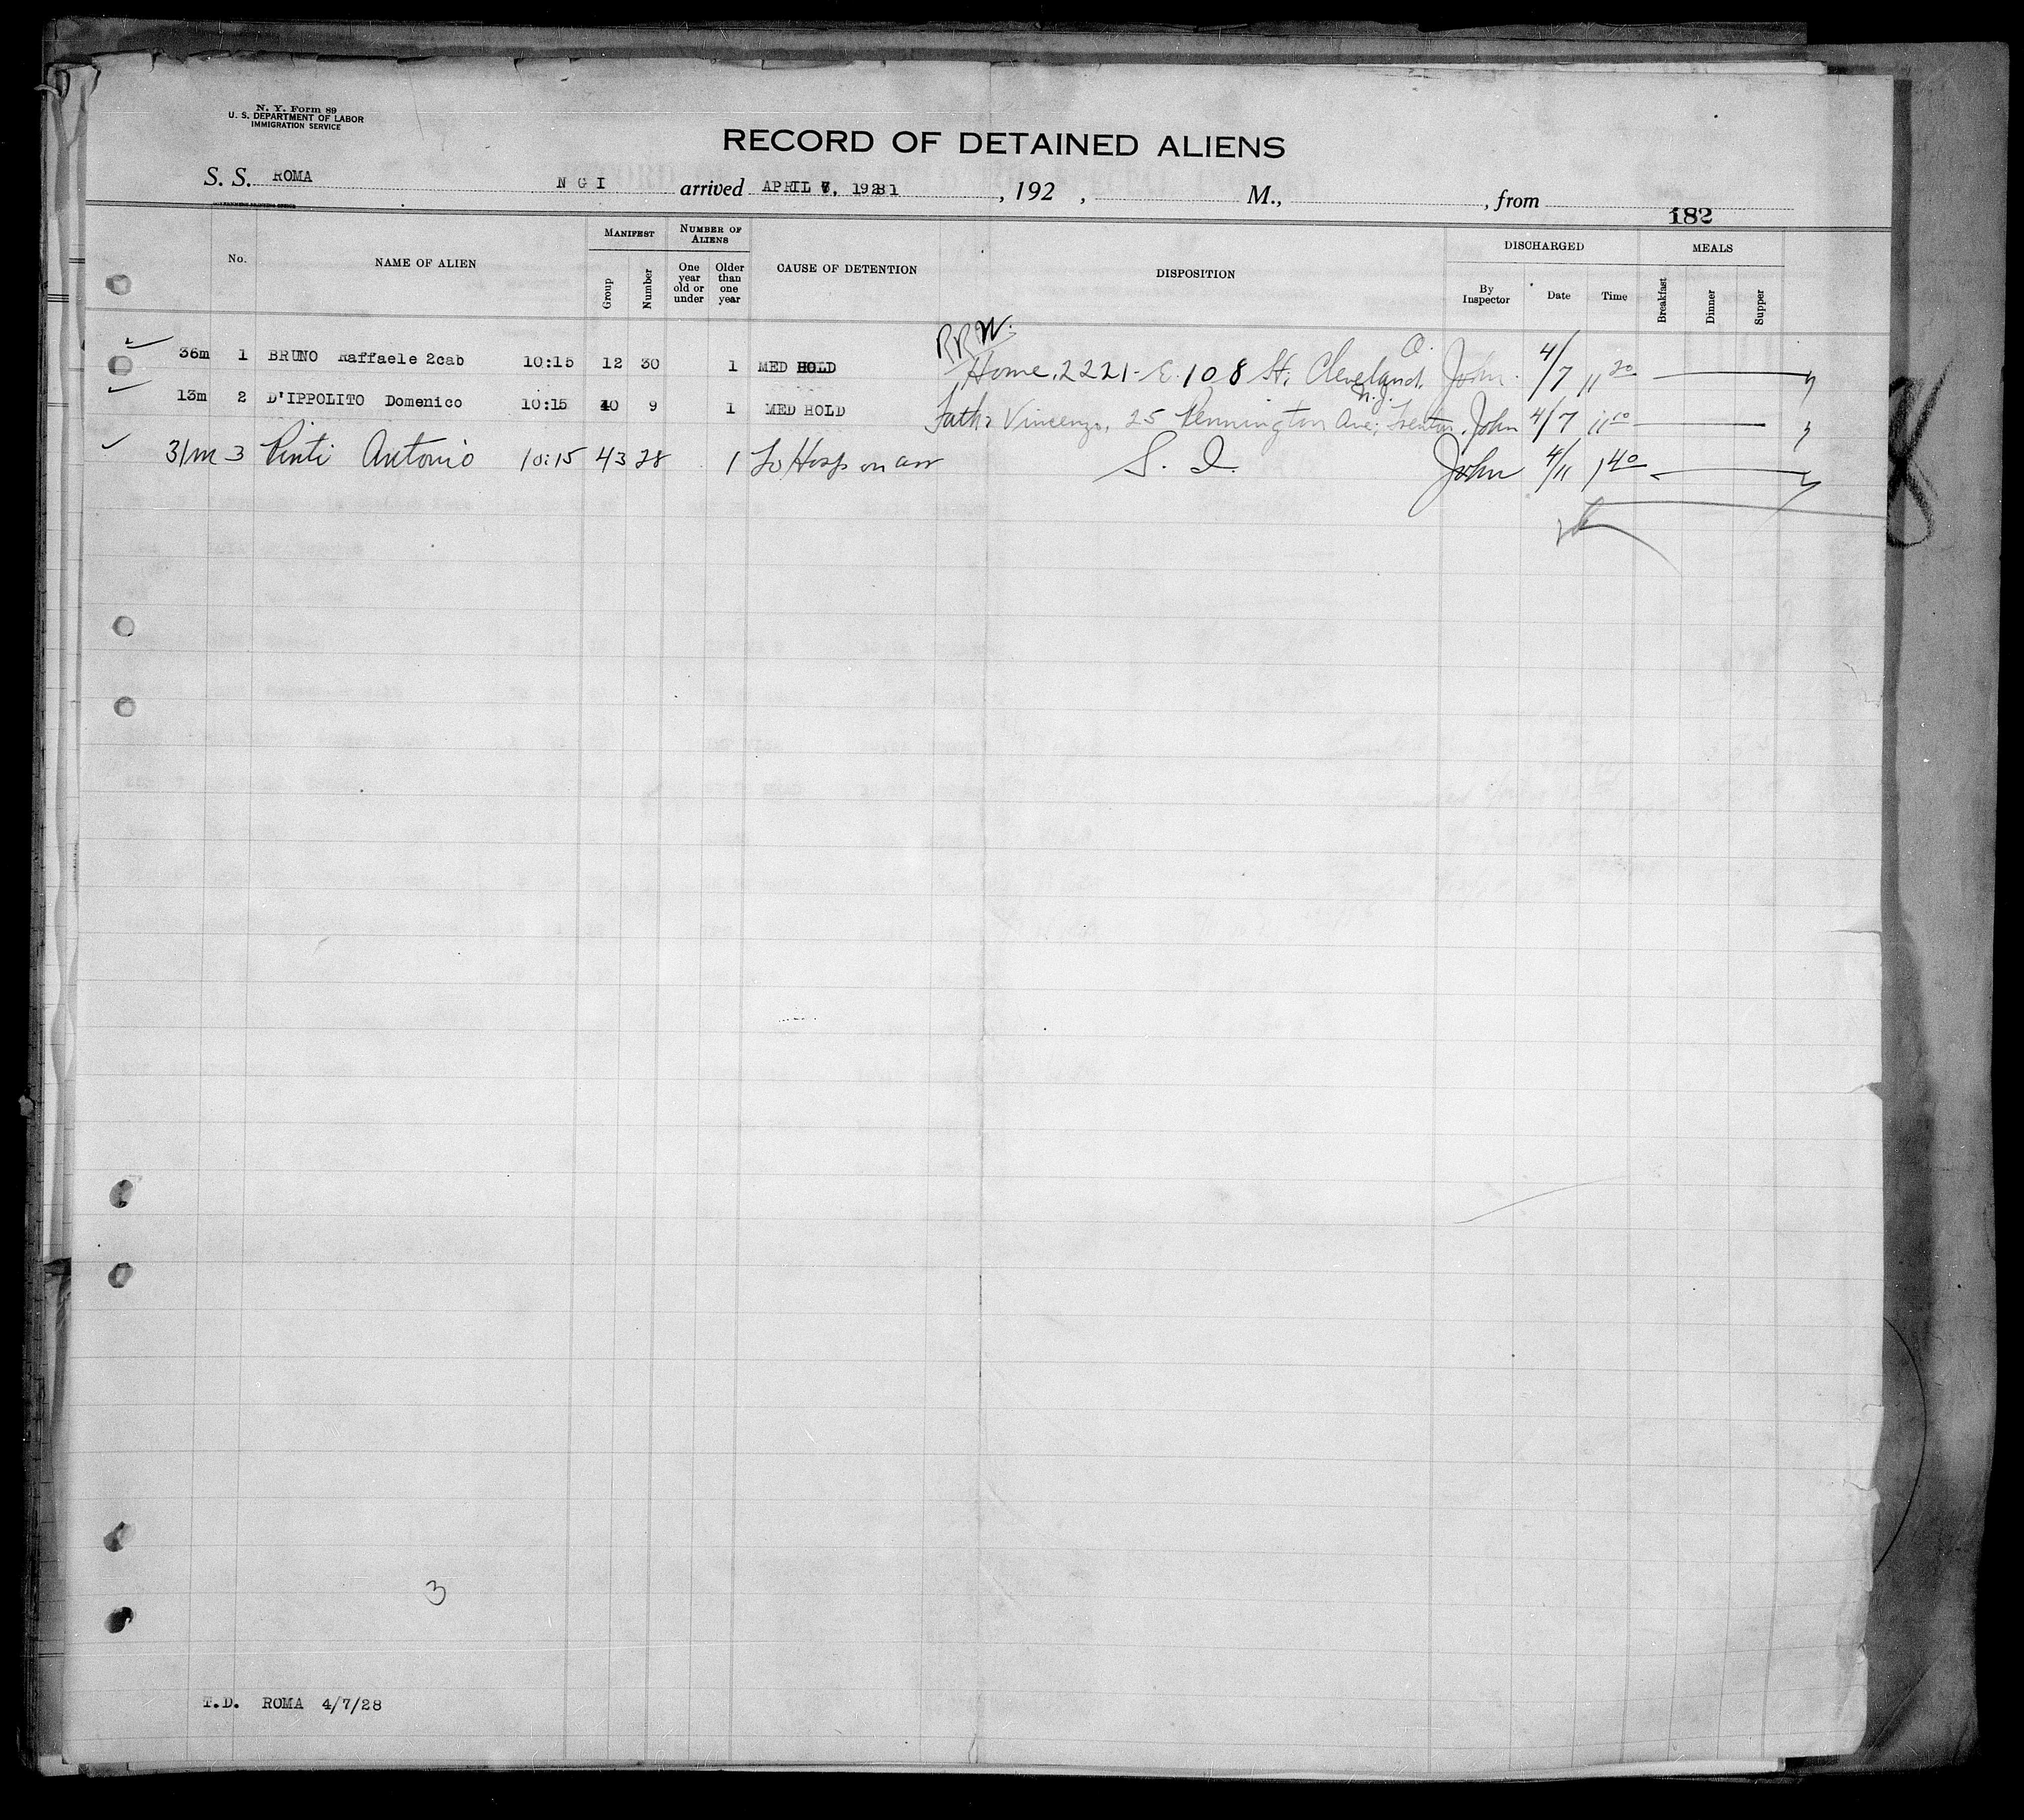 N. Y. Form 89
U. S. DEPARTMENT OF LABOR
IMMIGRATION SERVICE
RECORD OF DETAINED ALIENS
S. S. ROMA N G I arrived APRIL 7, 1928 , 192 , M., , from
GOVERNMENT PRINTING OFFICE
182
No. NAME OF ALIEN MANIFEST Group Number NUMBER OF ALIENS One year old or under Older than one year CAUSE OF DETENTION DISPOSITION DISCHARGED By Inspector Date Time MEALS Breakfast Dinner Supper
36m 1 BRUNO Raffaele 2cab 10:15 12 30 1 MED HOLD Home, 2221- E. 108 St, Cleveland, O. John 4/7 11 20
13m 2 D'IPPOLITO Domenico 10:15 40 9 1 MED HOLD Fath: Vincenzo, 25 Pennington Ave, Trenton, N.J. John 4/7 11 10
31m 3 Pinti Antonio 10:15 43 28 1 To Hosp on arr S. I. John 4/11 1 40
3
T.D. ROMA 4/7/28